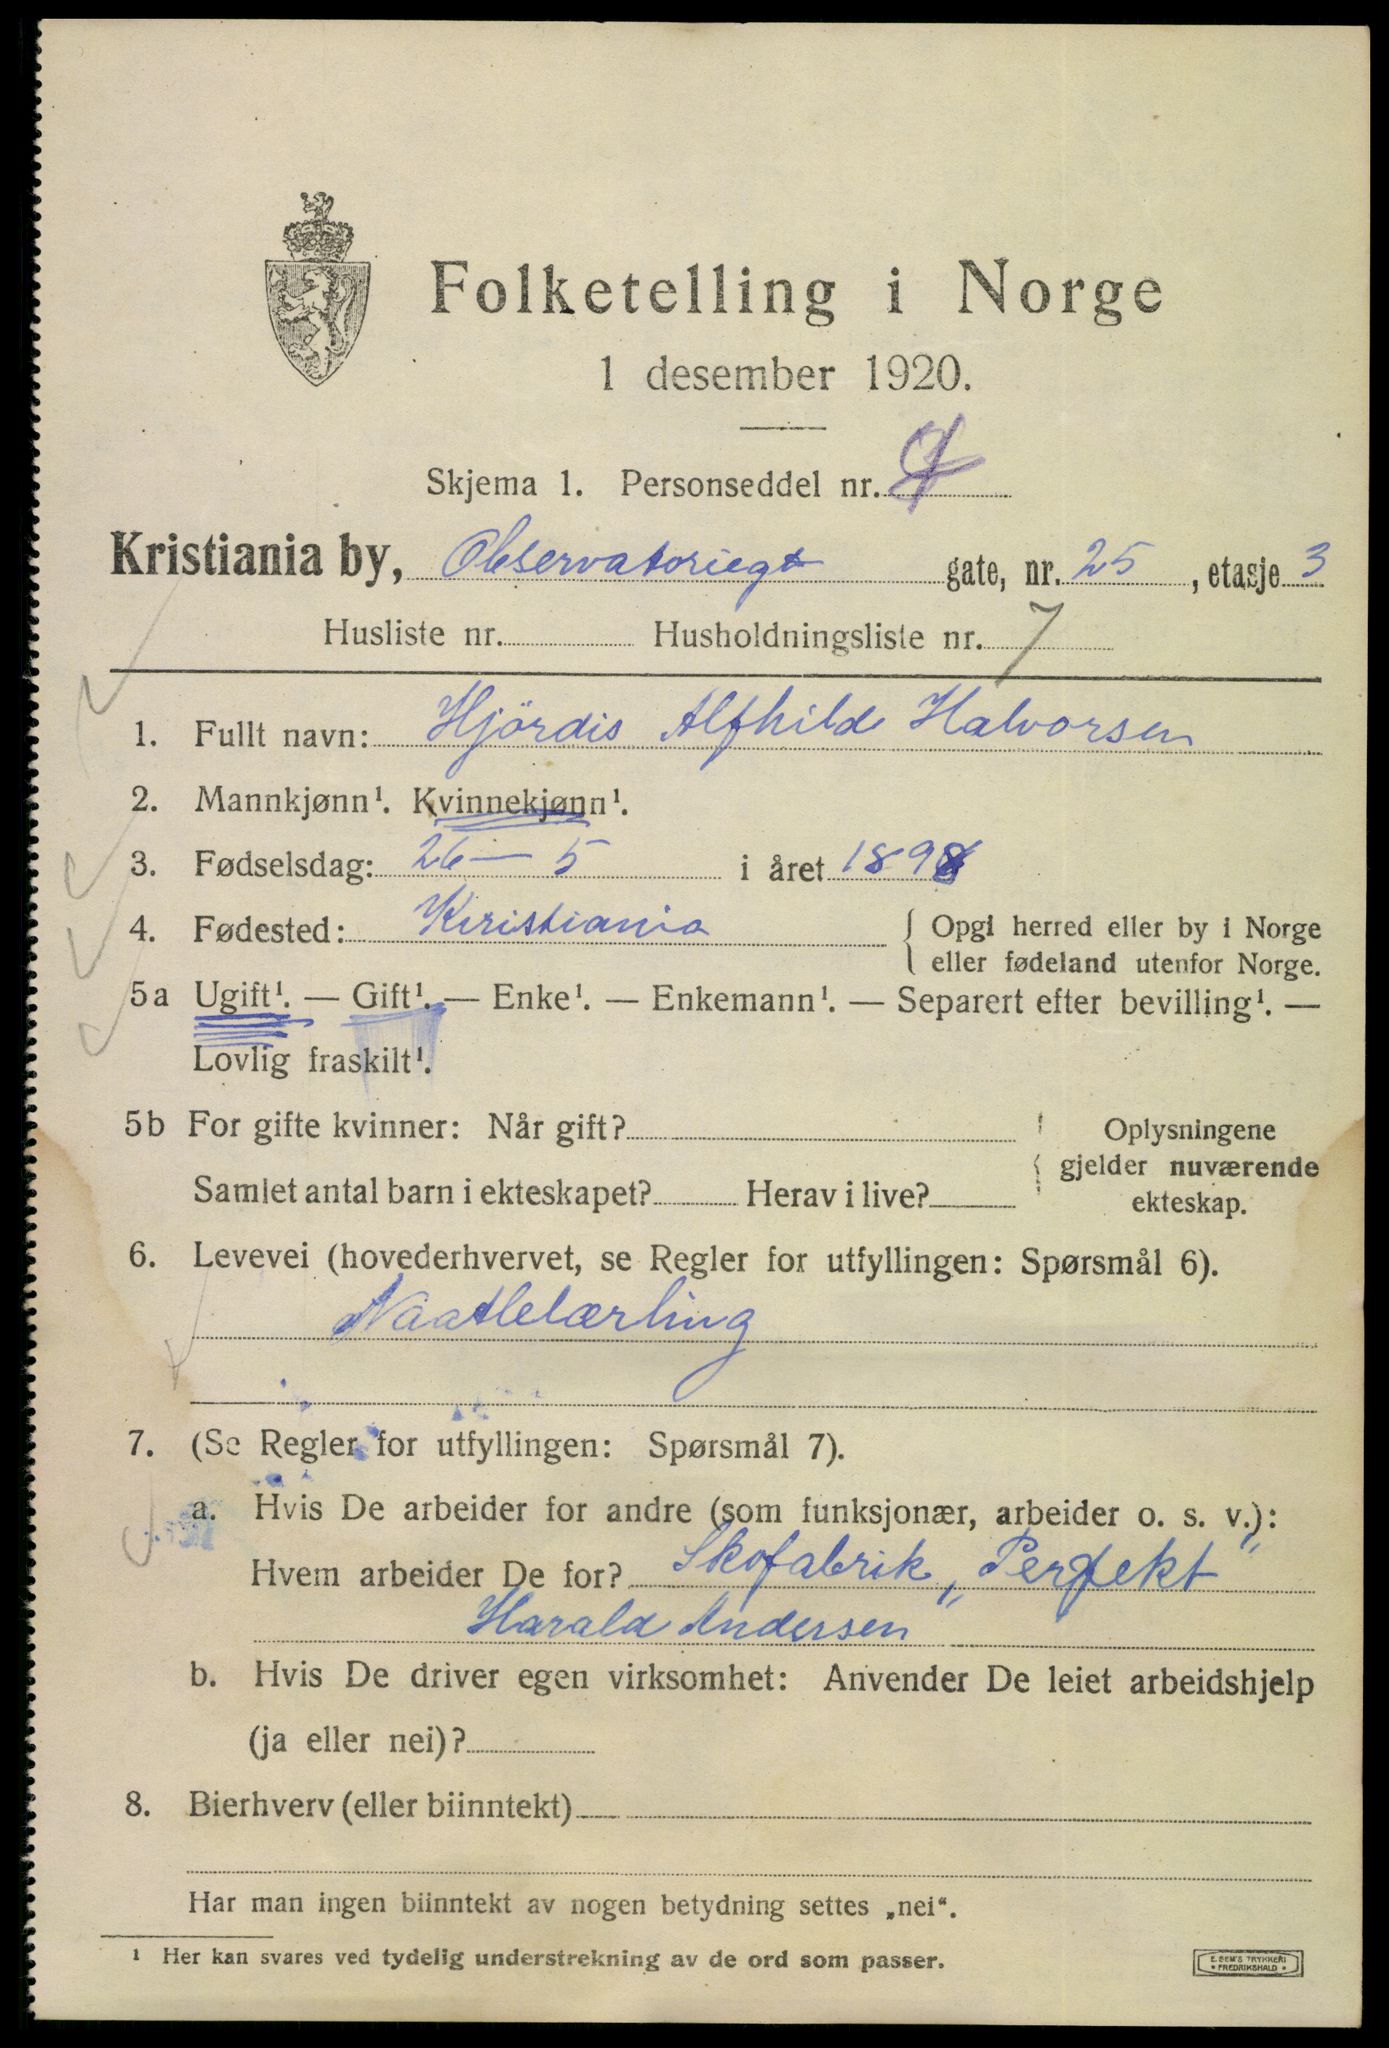 Folketelling i Norge
1 desember 1920.
Skjema 1. Personseddel nr.
Kristiania by, Observatoriegt gate, nr. 25, etasje 3
Husliste nr. Husholdningsliste nr. 7
1. Fullt navn: Hjördis Alfhild Halvorsen
2. Mannkjønn¹. Kvinnekjønn¹.
3. Fødselsdag: 26 — 5 i året 1898
4. Fødested: Kristiania { Opgi herred eller by i Norge
eller fødeland utenfor Norge.
5a Ugift¹. — Gift¹. — Enke¹. — Enkemann¹. — Separert efter bevilling¹. —
Lovlig fraskilt¹.
5b For gifte kvinner: Når gift? Oplysningene
gjelder nuværende
Samlet antal barn i ekteskapet? Herav i live? ekteskap.
6. Levevei (hovederhvervet, se Regler for utfyllingen: Spørsmål 6).
Naatlelærling
7. (Se Regler for utfyllingen: Spørsmål 7).
a. Hvis De arbeider for andre (som funksjonær, arbeider o. s. v.):
Hvem arbeider De for? Skofabrik „Perfekt"
Harald Andersen
b. Hvis De driver egen virksomhet: Anvender De leiet arbeidshjelp
(ja eller nei)?
8. Bierhverv (eller biinntekt)
Har man ingen biinntekt av nogen betydning settes „nei“.
¹ Her kan svares ved tydelig understrekning av de ord som passer.
E. SEM'S TRYKKERI
• FREDRIKSHALD •